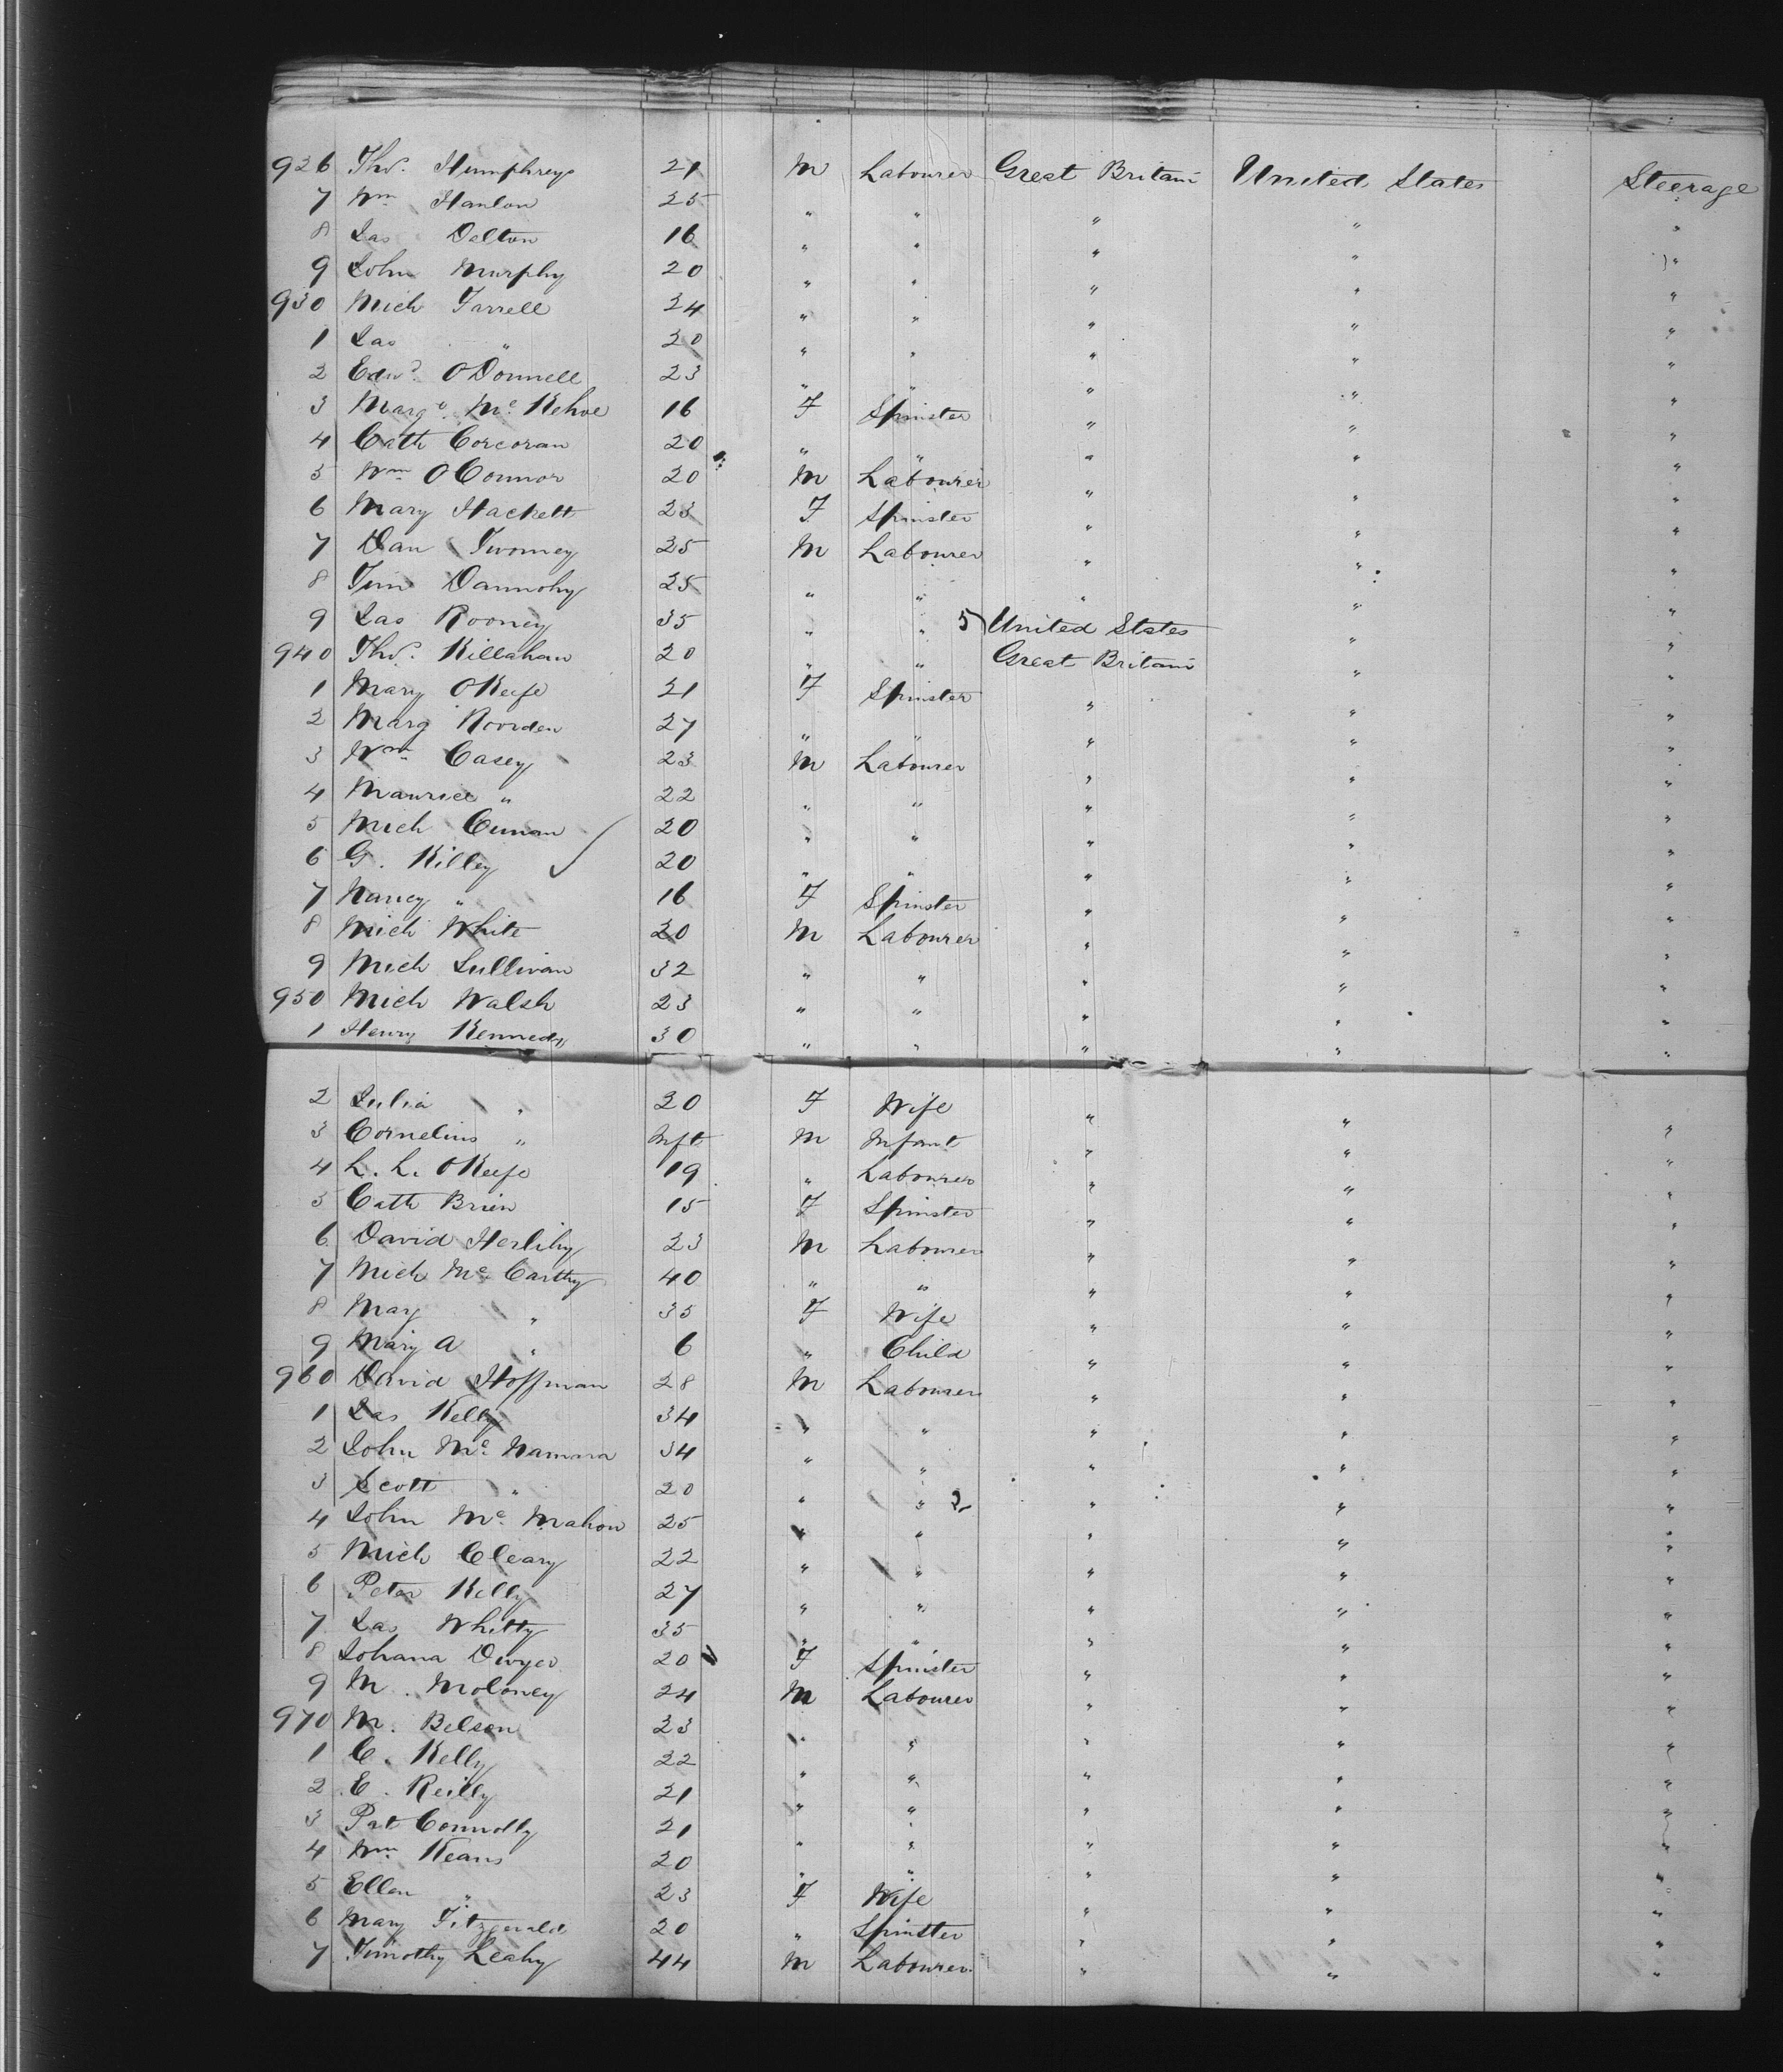 926 Thos. Humphreys 21 M Labourer Great Britain United States Steerage
7 Wm Hanlon 25 " " " " "
8 Jas Delton 16 " " " " "
9 John Murphy 20 " " " " "
930 Mich Farrell 24 " " " " "
1 Jas " 20 " " " " "
2 Edwd. O'Donnell 23 " " " " "
3 Margt. Mc Kehoe 16 F Spinster " " "
4 Cath Corcoran 20 " " " " "
5 Wm O'Connor 20 M Labourer " " "
6 Mary Hackett 23 F Spinster " " "
7 Dan Twomey 25 M Labourer " " "
8 Tim Dannohy 25 " " " " "
9 Jas Rooney 35 " " 5) United States " "
940 Thos. Killahan 20 " " Great Britain " "
1 Mary O'Keefe 21 F Spinster " " "
2 Marg Roorden 27 " " " " "
3 Wm Casey 23 M Labourer " " "
4 Maurice " 22 " " " " "
5 Mich 20 " " " " "
6 G. Killey 20 " " " " "
7 Nancy " 16 F Spinster " " "
8 Mich White 20 M Labourer " " "
9 Mich Sullivan 32 " " " " "
950 Mich Walsh 23 " " " " "
1 Henry Kennedy 30 " " " " "
2 Julia " 20 F Wife " " "
3 Cornelius " Inft M Infant " " "
4 L. L. O'Keefe 19 " Labourer " " "
5 Cath Brien 15 F Spinster " " "
6 David Herlihy 23 M Labourer " " "
7 Mich Mc Carthy 40 " " " " "
8 Mary " 35 F Wife " " "
9 Mary A " 6 " Child " " "
960 David Hoffman 28 M Labourer " " "
1 Jas Kelly 34 " " " " "
2 John Mc Namara 34 " " " " "
3 Scott " 20 " " " " "
4 John Mc Mahon 25 " " " " "
5 Mich Cleary 22 " " " " "
6 Peter Kelly 27 " " " " "
7 Jas Whitty 35 " " " " "
8 Johana Dwyer 20 F Spinster " " "
9 M. Moloney 24 M Labourer " " "
970 M. Belson 23 " " " " "
1 C. Kelly 22 " " " " "
2 E. Reilly 21 " " " " "
3 Pat Connolly 21 " " " " "
4 Wm Keans 20 " " " " "
5 Ellen " 23 F Wife " " "
6 Mary Fitzgerald 20 " Spinster " " "
7 Timothy Leahy 44 M Labourer " " "